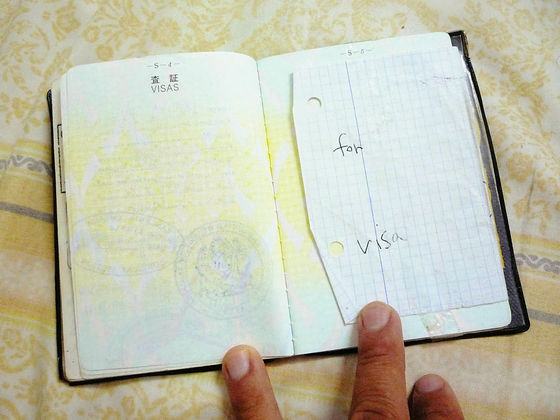 —S-4—
査 証
VISAS
—S-5—
for
visa